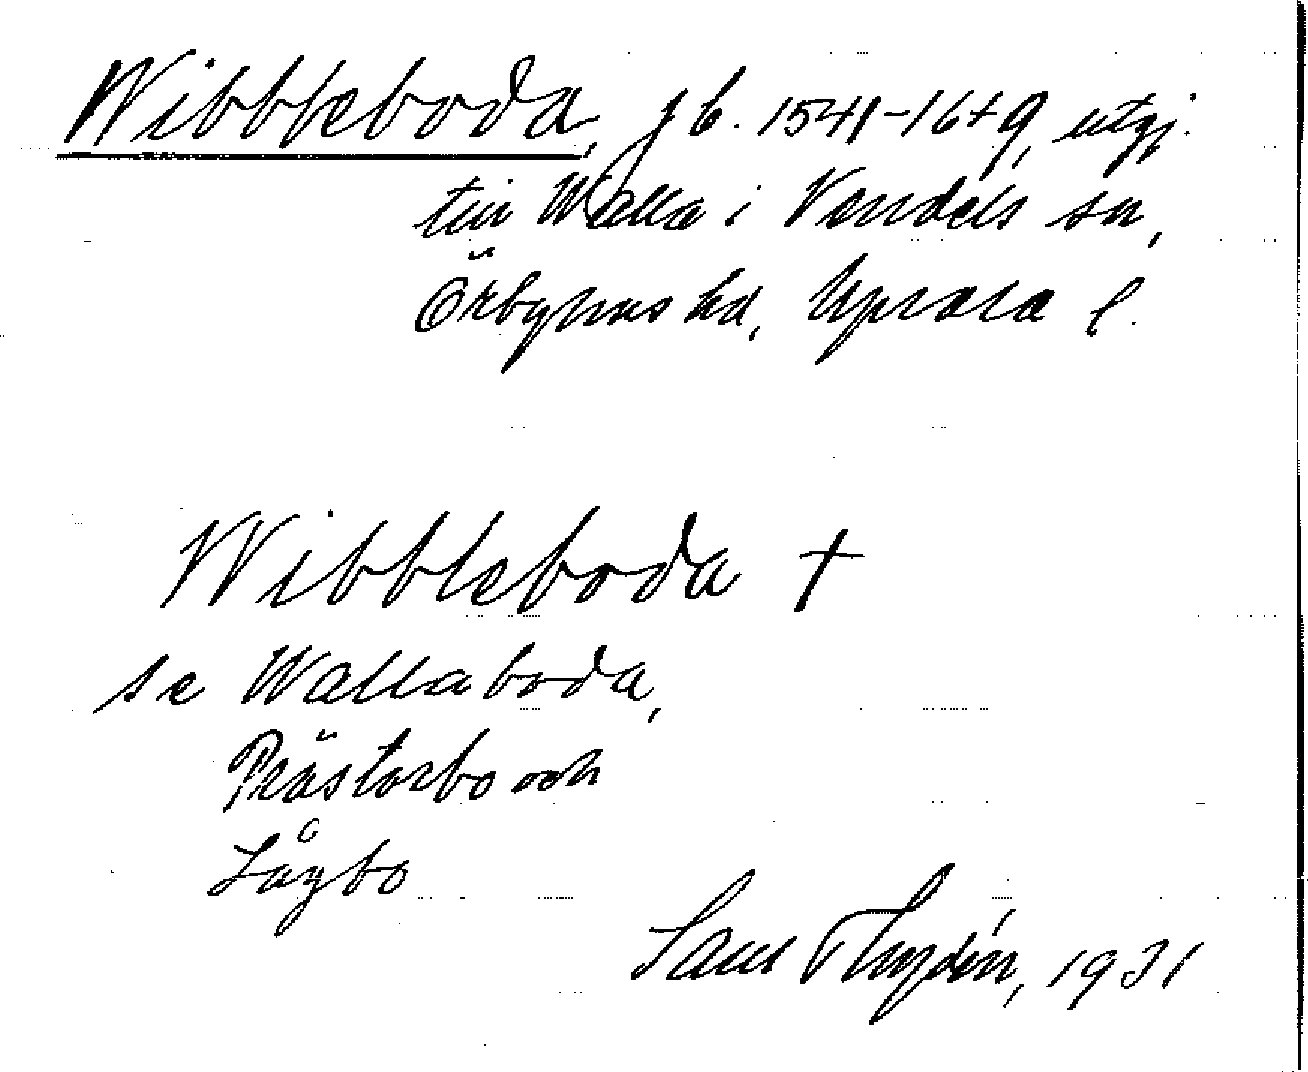 Wibbleboda, jb. 1541-1649, utgj.
till Walla i Vendels sn,
Örbyhus hd, Upsala l.
Wibbleboda †
se Wallaboda,
Prästorbo och
Lågbo
1931